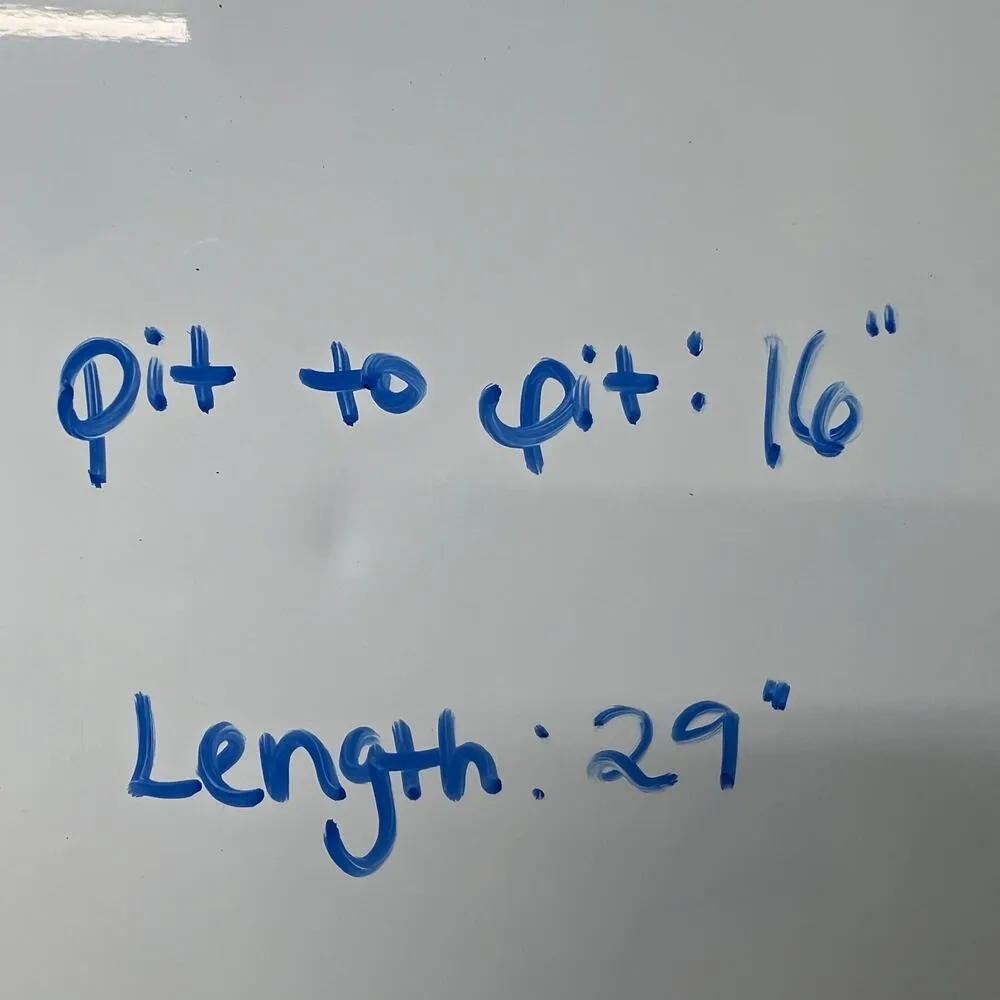 pit to pit: 16"
Length: 29"